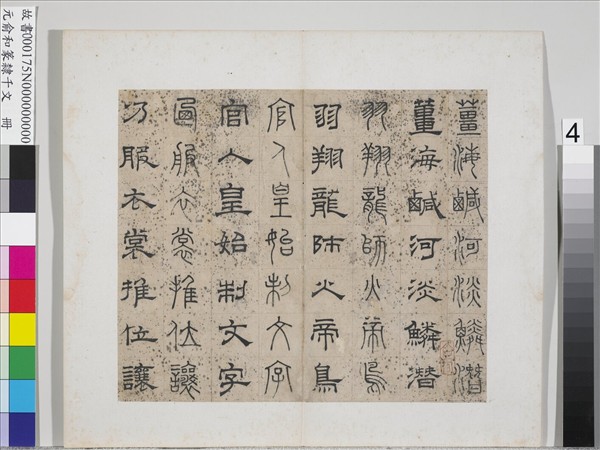 薑海鹹河淡鱗潛
薑海鹹河淡鱗潛
羽翔龍師火帝鳥
羽翔龍師火帝鳥
官人皇始制文字
官人皇始制文字
服衣裳推位讓
乃服衣裳推位讓
故書000175N000000000
元俞和篆隸千文 冊
4